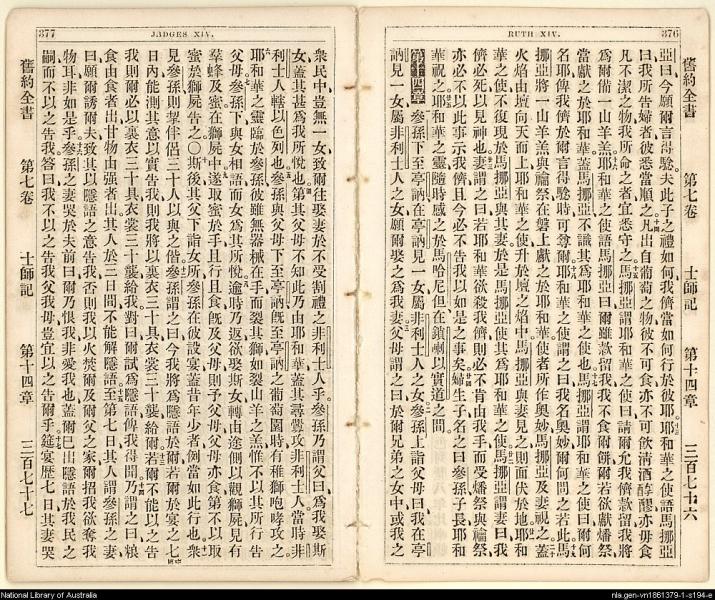 RUTH XIV.
376
舊約全書 第七卷 士師記 第十四章 三百七十六
亞曰今願爾言得騐夫此子之禮如何我儕當如何行於彼耶耶和華之使語馬挪亞
曰我所告婦者彼悉當順之凡出自葡萄之物彼不可食亦不可飲清酒醇醪亦毋食
凡不潔之物我所命之者宜悉守之馬挪亞謂耶和華之使曰請爾允我儕款留我將
為爾備一山羊羔耶和華之使語馬挪亞曰爾雖款留我我不食爾餅爾若欲獻燔祭
當獻之於耶和華蓋馬挪亞不識其為耶和華之使也馬挪亞謂耶和華之使曰爾何
名耶俾我儕於爾言得騐時可尊爾耶和華之使謂之曰我名奧妙爾何問之若此馬
挪亞將一山羊羔與禴祭在磐上獻之於耶和華使者所作奧妙馬挪亞及妻視之蓋
火焰由壇向天而上耶和華之使升於壇之焰中馬挪亞與妻見之則面伏於地耶和
華之使不復現於馬挪亞與其妻於是馬挪亞知其為耶和華之使馬挪亞謂妻曰我
儕必死以見神也妻謂之曰若耶和華欲殺我儕則必不肯由我手而受燔祭與禴祭
亦必不以此事示我儕且今必不告我以如是之事矣婦生子名之曰參孫子長耶和
華祝之耶和華之靈隨時感之於馬哈尼但在鎖喇以實道之間
第十四章 參孫下至亭訥在亭訥見一女屬非利士人之女參孫上詣父母曰我在亭
訥見一女屬非利士人之女願爾娶之為我妻父母謂之曰於爾兄弟之女中或我之
377
JUDGES XIV.
衆民中豈無一女致爾往娶妻於不受割禮之非利士人乎參孫乃謂父曰為我娶斯
女蓋其甚為我所悅也第其父母不知此乃由耶和華蓋其尋釁攻非利士人當時非
利士人轄以色列也參孫與父母下至亭訥既至亭訥之葡萄園時有稚獅咆哮攻之
耶和華之靈臨於參孫彼雖無器械在手而裂其獅如裂山羊之羔惟不以其所行告
父母參孫下與女相語而女為其所悅逾時乃返欲娶斯女轉由途側以觀獅屍見有
羣蜂及蜜在獅屍中遂取蜜於手且行且食既及父母則予父母父母亦食第不以取
蜜於獅屍告之〇斯後其父下詣女所參孫在彼設宴蓋昔年少者例當如此行也衆
見參孫則挈伴侶三十人以與之偕參孫謂之曰今我將為隱語於爾若爾於宴之七
日內能測其意以實告我則我將以裏衣三十具衣裳三十襲給爾若爾不能以之告
我則爾必以裏衣三十具衣裳三十襲給我對曰爾試為隱語俾我得聞乃謂之曰糧
食由食者出甘物由強者出其人於三日間不能解隱語至第七日其人謂參孫之妻
曰願爾誘爾夫致其以隱語之意告我否則我以火焚爾及爾父之家爾招我欲奪我
物耳非如是乎參孫之妻哭於夫前曰爾乃恨我非愛我也蓋爾已出隱語於我民之
嗣而不以之告我答曰我不以之告我父我母豈宜以之告爾乎筵宴歷七日其妻哭
舊約全書 第七卷 士師記 第十四章 三百七十七
National Library of Australia
nla.gen-vn1861379-1-s194-e